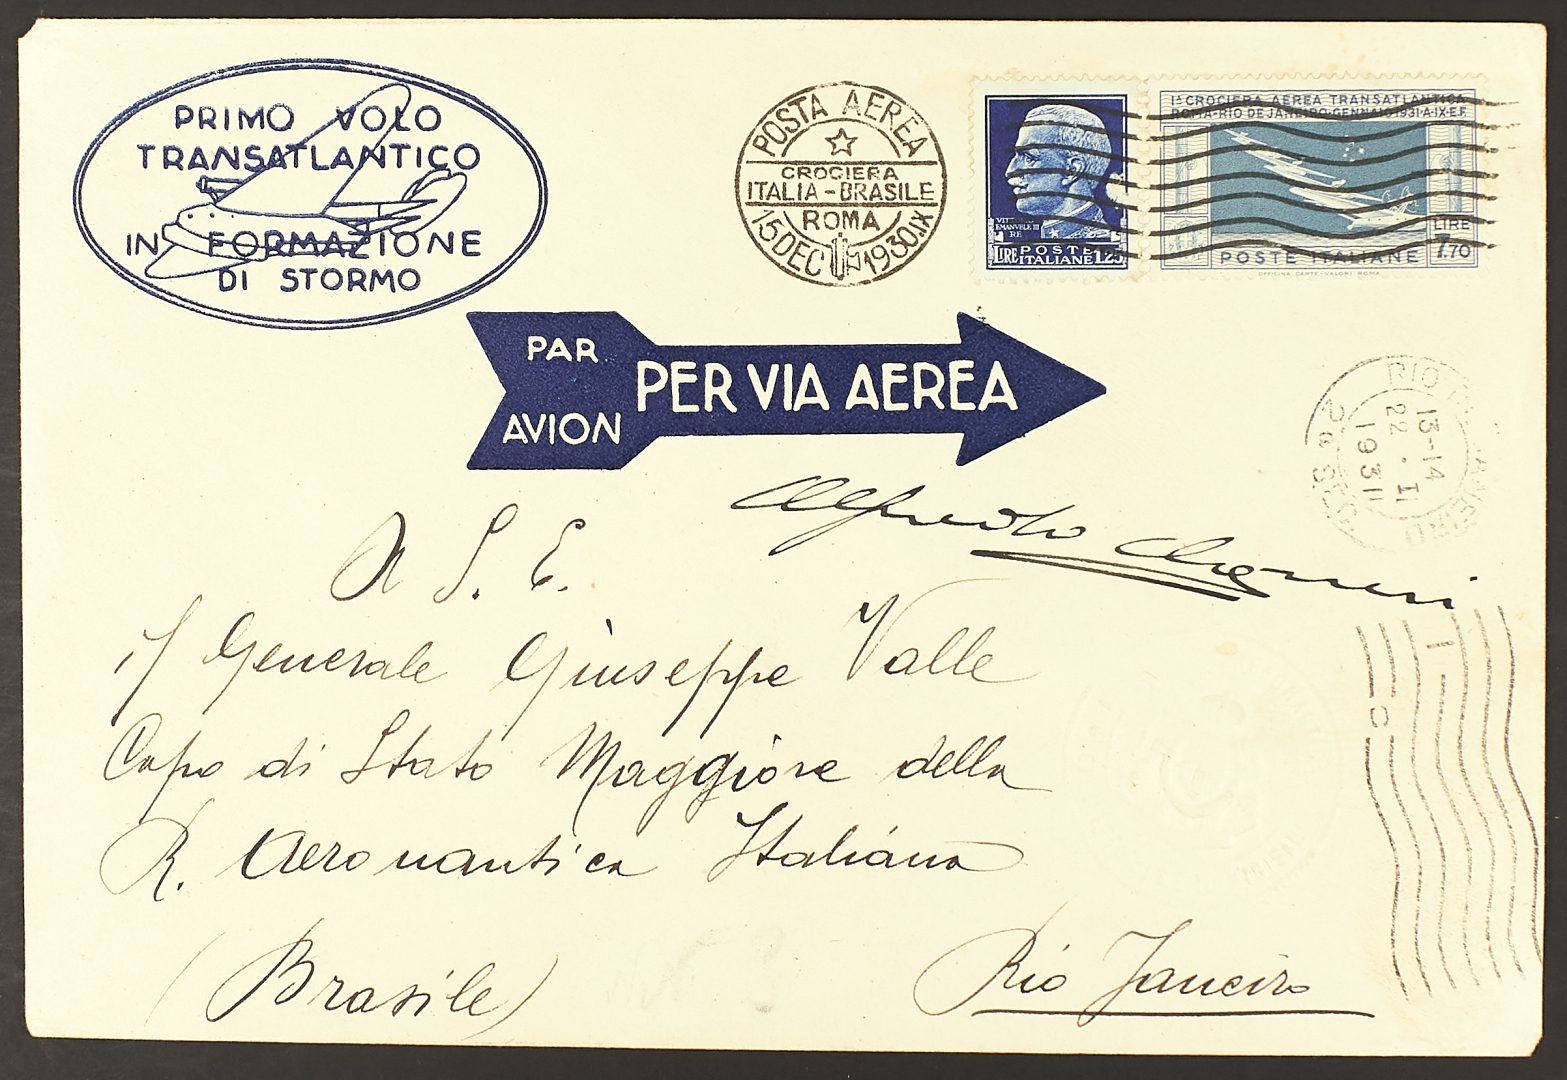 PRIMO VOLO
TRANSATLANTICO
IN FORMAZIONE
DI STORMO
POSTA AEREA
CROCIERA
ITALIA-BRASILE
ROMA
15 DEC 1930.IX
VITTORIO
EMANVELE III
RE
POSTE
LIRE ITALIANE 1.25
1ª CROCIERA AEREA TRANSATLANTICA
ROMA-RIO DE JANEIRO-GENNAIO 1931-A.IX-E.F.
LIRE
7.70
POSTE ITALIANE
OFFICINA CARTE-VALORI ROMA
PAR
AVION
PER VIA AEREA
RIO DE JANEIRO
13-14
22. II
1931
2ª SEC
Alfredo
A S. E.
il Generale Giuseppe Valle
Capo di Stato Maggiore della
R. Aeronautica Italiana
(Brasile)
Rio Janeiro